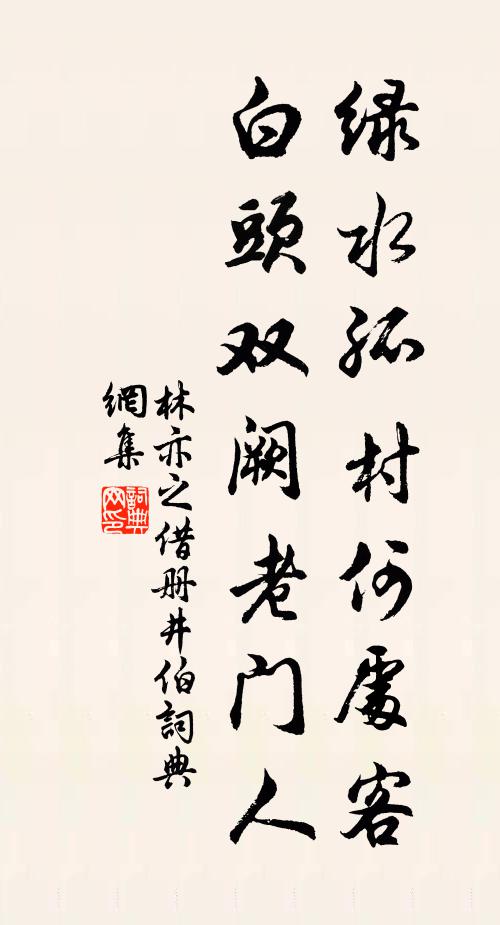 绿水孤村何處客
白頭双阙老門人
林亦之借册井伯詞典
網集
詞典
网印